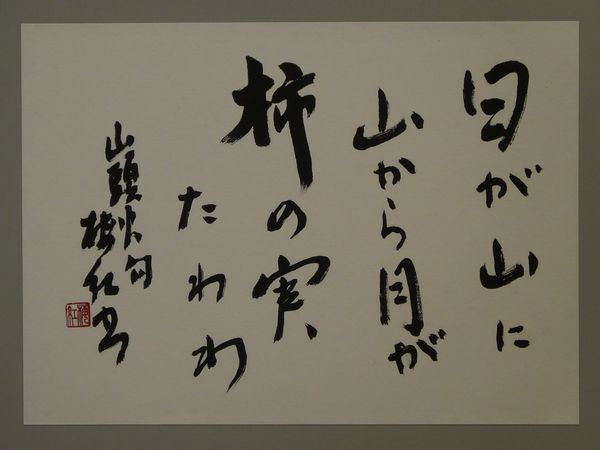 日が山に
山から月が
柿の実
たわわ
山頭火句
梅紅書